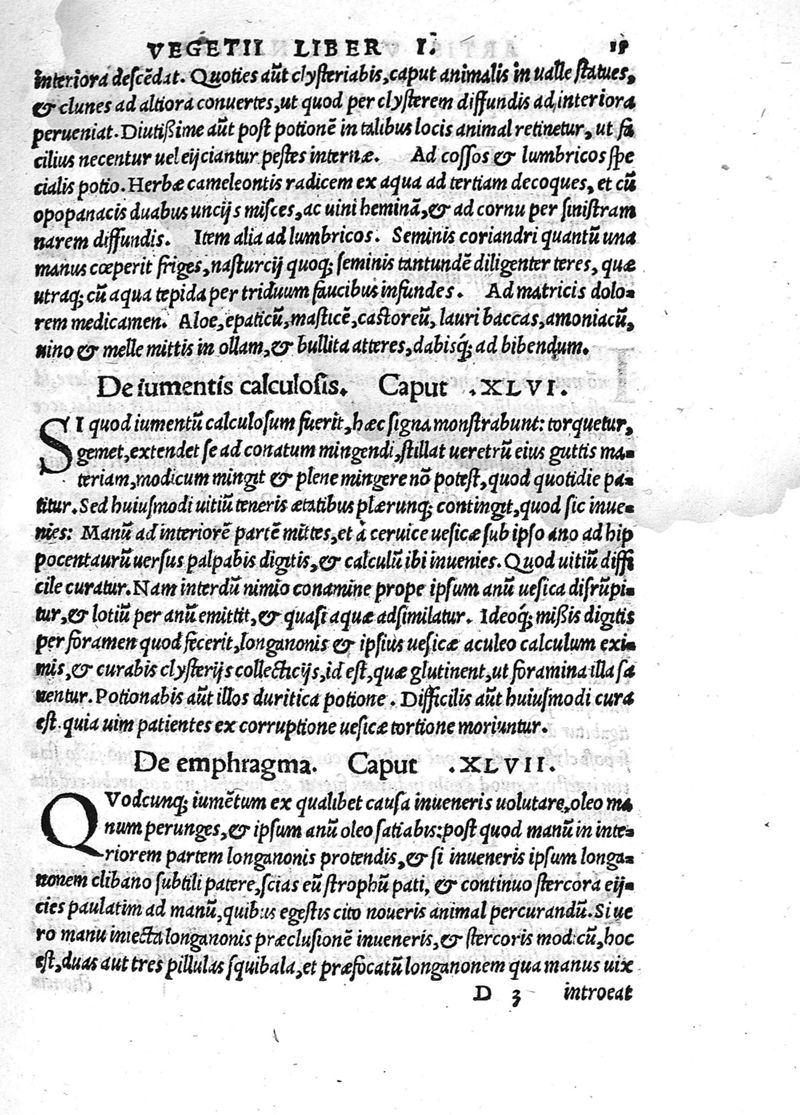 VEGETII LIBER I. 15
interiora descēdat. Quoties aūt clysteriabis,caput animalis in ualle statues,
& clunes ad altiora conuertes,ut quod per clysterem diffundis ad interiora
perueniat. Diutißime aūt post potionē in talibus locis animal retinetur, ut fa
cilius necentur uel eijciantur pestes internæ. Ad cossos & lumbricos spe
cialis potio. Herbæ cameleontis radicem ex aqua ad tertiam decoques, et cū
opopanacis duabus uncijs misces, ac uini heminā,& ad cornu per sinistram
narem diffundis. Item alia ad lumbricos. Seminis coriandri quantū una
manus cœperit friges,nasturcij quoq; seminis tantundē diligenter teres, quæ
utraq; cū aqua tepida per triduum faucibus infundes. Ad matricis dolo-
rem medicamen. Aloe, epaticū,masticē,castoreū, lauri baccas,amoniacū,
uino & melle mittis in ollam,& bullita atteres,dabisq; ad bibendum.
De iumentis calculosis. Caput .XLVI.
SI quod iumentū calculosum fuerit, hæc signa monstrabunt: torquetur,
gemet,extendet se ad conatum mingendi,stillat ueretrū eius guttis ma-
teriam,modicum mingit & plene mingere nō potest,quod quotidie pa-
titur. Sed huiusmodi uitiū teneris ætatibus plærunq; contingit,quod sic inue-
nies: Manū ad interiorē partē mittes,et à ceruice uesicæ sub ipso ano ad hip
pocentaurū uersus palpabis digitis,& calculū ibi inuenies. Quod uitiū diffi
cile curatur. Nam interdū nimio conamine prope ipsum anū uesica disrūpi-
tur,& lotiū per anū emittit,& quasi aquæ adsimilatur. Ideoq; mißis digitis
per foramen quod fecerit,longanonis & ipsius uesicæ aculeo calculum exi-
mis,& curabis clysterijs collecticijs,id est,quæ glutinent,ut foramina illa sa
nentur. Potionabis aūt illos duritica potione. Difficilis aūt huiusmodi cura
est. quia uim patientes ex corruptione uesicæ tortione moriuntur.
De emphragma. Caput .XLVII.
QVodcunq; iumētum ex qualibet causa inueneris uolutare,oleo ma
num perunges,& ipsum anū oleo satiabis:post quod manū in inte-
riorem partem longanonis protendis,& si inueneris ipsum longa-
nonem clibano subtili patere,scias eū strophū pati, & continuo stercora eij-
cies paulatim ad manū,quibus egestis cito noueris animal percurandū. Si ue
ro manu iniecta longanonis præclusionē inueneris,& stercoris modicū,hoc
est,duas aut tres pillulas squibala,et præfocatū longanonem qua manus uix
D 3 introeat